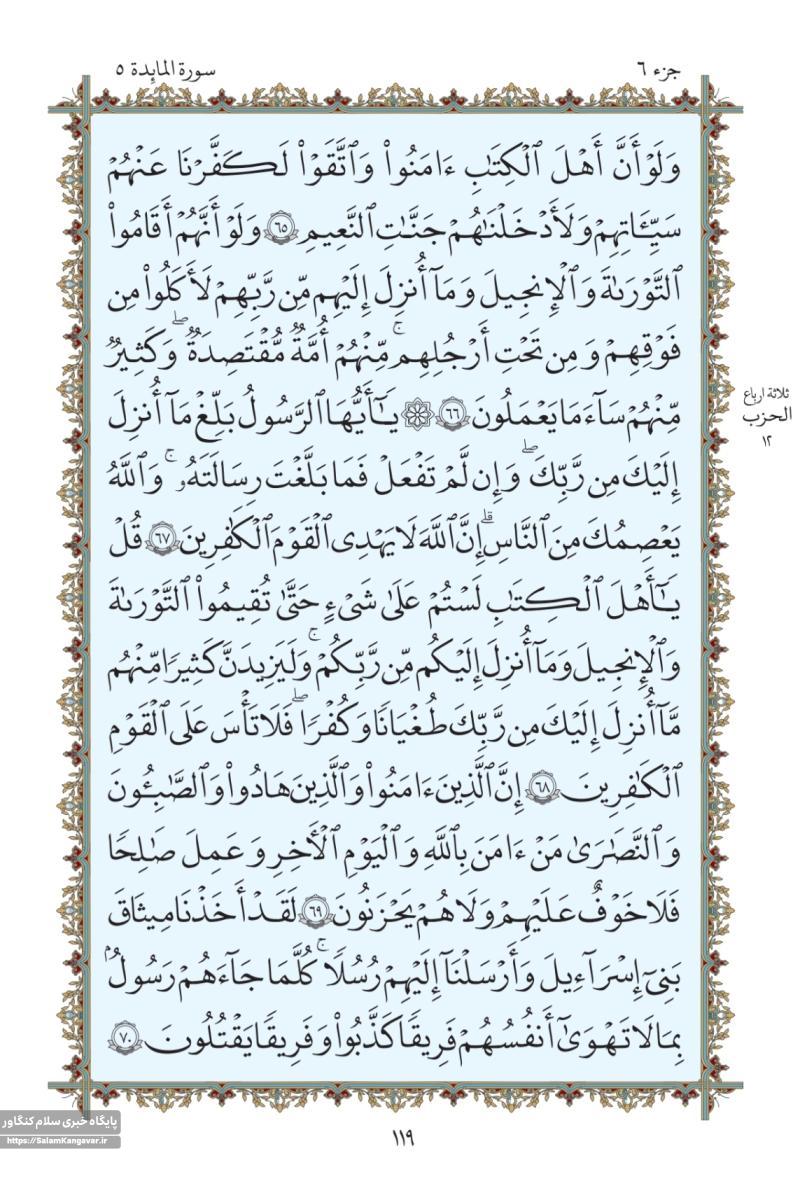 جزء ٦
سورة المايٕدة ٥
وَلَوْ أَنَّ أَهْلَ ٱلْكِتَٰبِ ءَامَنُوا۟ وَٱتَّقَوْا۟ لَكَفَّرْنَا عَنْهُمْ
سَيِّـَٔاتِهِمْ وَلَأَدْخَلْنَٰهُمْ جَنَّٰتِ ٱلنَّعِيمِ ٦٥ وَلَوْ أَنَّهُمْ أَقَامُوا۟
ٱلتَّوْرَىٰةَ وَٱلْإِنجِيلَ وَمَآ أُنزِلَ إِلَيْهِم مِّن رَّبِّهِمْ لَأَكَلُوا۟ مِن
فَوْقِهِمْ وَمِن تَحْتِ أَرْجُلِهِم ۚ مِّنْهُمْ أُمَّةٌ مُّقْتَصِدَةٌ ۖ وَكَثِيرٌ
مِّنْهُمْ سَآءَ مَا يَعْمَلُونَ ٦٦ ۞ يَٰٓأَيُّهَا ٱلرَّسُولُ بَلِّغْ مَآ أُنزِلَ
إِلَيْكَ مِن رَّبِّكَ ۖ وَإِن لَّمْ تَفْعَلْ فَمَا بَلَّغْتَ رِسَالَتَهُۥ ۚ وَٱللَّهُ
يَعْصِمُكَ مِنَ ٱلنَّاسِ ۗ إِنَّ ٱللَّهَ لَا يَهْدِى ٱلْقَوْمَ ٱلْكَٰفِرِينَ ٦٧ قُلْ
يَٰٓأَهْلَ ٱلْكِتَٰبِ لَسْتُمْ عَلَىٰ شَىْءٍ حَتَّىٰ تُقِيمُوا۟ ٱلتَّوْرَىٰةَ
وَٱلْإِنجِيلَ وَمَآ أُنزِلَ إِلَيْكُم مِّن رَّبِّكُمْ ۗ وَلَيَزِيدَنَّ كَثِيرًا مِّنْهُم
مَّآ أُنزِلَ إِلَيْكَ مِن رَّبِّكَ طُغْيَانًا وَكُفْرًا ۖ فَلَا تَأْسَ عَلَى ٱلْقَوْمِ
ٱلْكَٰفِرِينَ ٦٨ إِنَّ ٱلَّذِينَ ءَامَنُوا۟ وَٱلَّذِينَ هَادُوا۟ وَٱلصَّٰبِـُٔونَ
وَٱلنَّصَٰرَىٰ مَنْ ءَامَنَ بِٱللَّهِ وَٱلْيَوْمِ ٱلْـَٔاخِرِ وَعَمِلَ صَٰلِحًا
فَلَا خَوْفٌ عَلَيْهِمْ وَلَا هُمْ يَحْزَنُونَ ٦٩ لَقَدْ أَخَذْنَا مِيثَٰقَ
بَنِىٓ إِسْرَٰٓءِيلَ وَأَرْسَلْنَآ إِلَيْهِمْ رُسُلًا ۖ كُلَّمَا جَآءَهُمْ رَسُولٌۢ
بِمَا لَا تَهْوَىٰٓ أَنفُسُهُمْ فَرِيقًا كَذَّبُوا۟ وَفَرِيقًا يَقْتُلُونَ ٧٠
ثلاثة ارباع
الحزب
١٢
١١٩
پایگاه خبری سلام کنگاور
https://SalamKangavar.ir